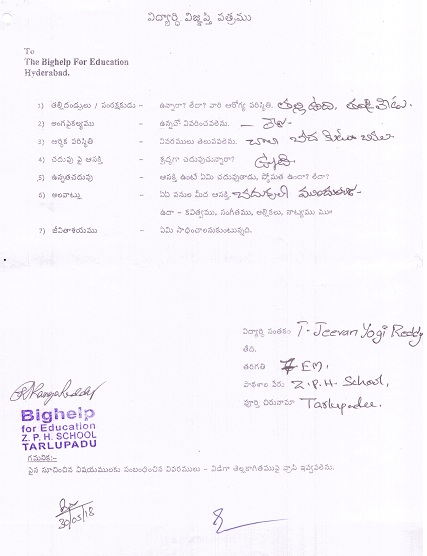 విద్యార్థి విజ్ఞప్తి పత్రము
To
The Bighelp For Education
Hyderabad.
1) తల్లిదండ్రులు / సంరక్షకుడు – ఉన్నారా? లేదా? వారి ఆరోగ్య పరిస్థితి. తల్లి ఉంది, తండ్రి లేడు.
2) అంగవైకల్యము – ఉన్నచో వివరించవలెను. – లేదు
3) ఆర్థిక పరిస్థితి – వివరములు తెలుపవలెను. చాలా పేద
4) చదువు పై ఆసక్తి – శ్రద్ధగా చదువుచున్నారా? ఉన్నది
5) ఉన్నతచదువు – ఆసక్తి ఉంటే ఏమి చదువుతాడు, స్తోమత ఉందా? లేదా?
6) అలవాట్లు – ఏఏ పనుల మీద ఆసక్తి.
ఉదా – కవిత్వము, సంగీతము, అల్లికలు, నాట్యము మొ
7) జీవితాశయము – ఏమి సాధించాలనుకుంటున్నది.
విద్యార్థి సంతకం T. Jeevan Yogi Reddy
తేది.
తరగతి 7 EM,
పాఠశాల పేరు Z.P.H. School,
పూర్తి చిరునామా Tarlupadu.
Bighelp
for Education
Z. P. H. SCHOOL
TARLUPADU
గమనిక:–
పైన సూచించిన విషయములకు సంబంధించిన వివరములు – విడిగా తెల్లకాగితముపై వ్రాసి ఇవ్వవలెను.
30/03/18